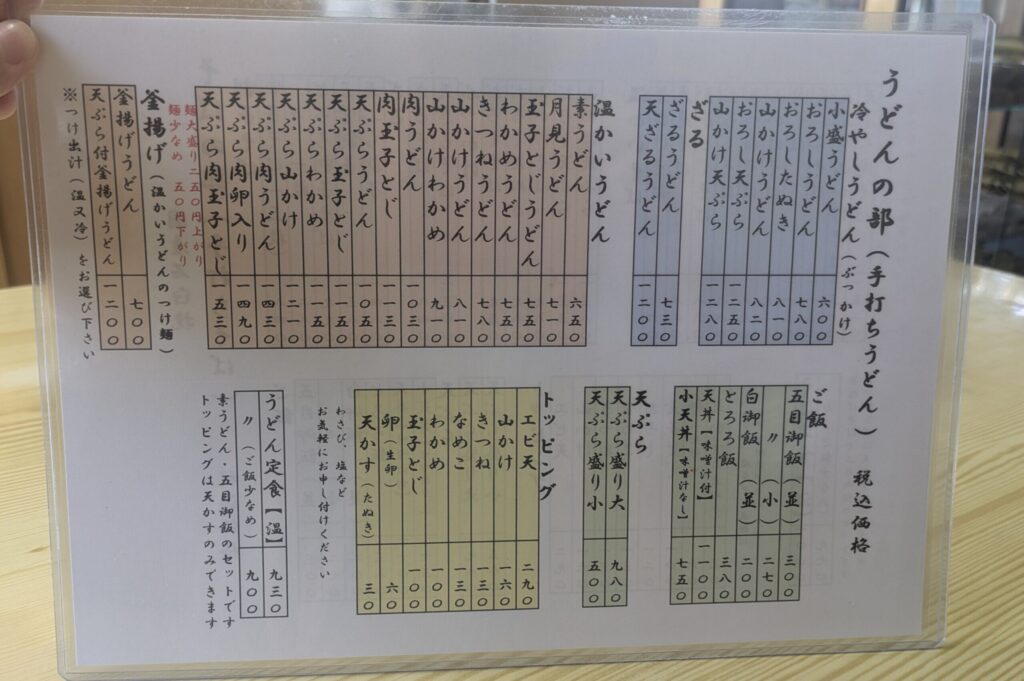 うどんの部(手打ちうどん) 税込価格
冷やしうどん(ぶっかけ)
小盛うどん 六〇〇
おろしうどん 七八〇
おろしたぬき 八一〇
山かけうどん 八二〇
おろし天ぷら 一二五〇
山かけ天ぷら 一二八〇
ざる
ざるうどん 七三〇
天ざるうどん 一二〇〇
温かいうどん
素うどん 六五〇
月見うどん 七一〇
玉子とじうどん 七五〇
わかめうどん 七五〇
きつねうどん 七八〇
山かけうどん 八一〇
山かけわかめ 九一〇
肉うどん 一〇三〇
肉玉子とじ 一一三〇
天ぷらうどん 一〇五〇
天ぷら玉子とじ 一一五〇
天ぷらわかめ 一一五〇
天ぷら山かけ 一二一〇
天ぷら肉うどん 一四三〇
天ぷら肉卵入り 一四九〇
天ぷら肉玉子とじ 一五三〇
麺大盛り二五〇円上がり
麺少なめ 五〇円下がり
釜揚げ(温かいうどんのつけ麺)
釜揚げうどん 七〇〇
天ぷら付釜揚げうどん 一二〇〇
※つけ出汁(温又冷)をお選び下さい
ご飯
五目御飯(並) 三〇〇
〃(小) 二七〇
白御飯(並) 二〇〇
とろろ飯 三八〇
天丼【味噌汁付】 一一〇〇
小天丼【味噌汁なし】 七五〇
天ぷら
天ぷら盛り大 九八〇
天ぷら盛り小 五〇〇
トッピング
エビ天 二九〇
山かけ 一六〇
きつね 一三〇
なめこ 一三〇
わかめ 一〇〇
玉子とじ 一〇〇
卵(生卵) 六〇
天かす(たぬき) 三〇
わさび、塩など
お気軽にお申し付けください
うどん定食【温】 九三〇
〃(ご飯少なめ) 九〇〇
素うどん・五目御飯のセットです
トッピングは天かすのみできます